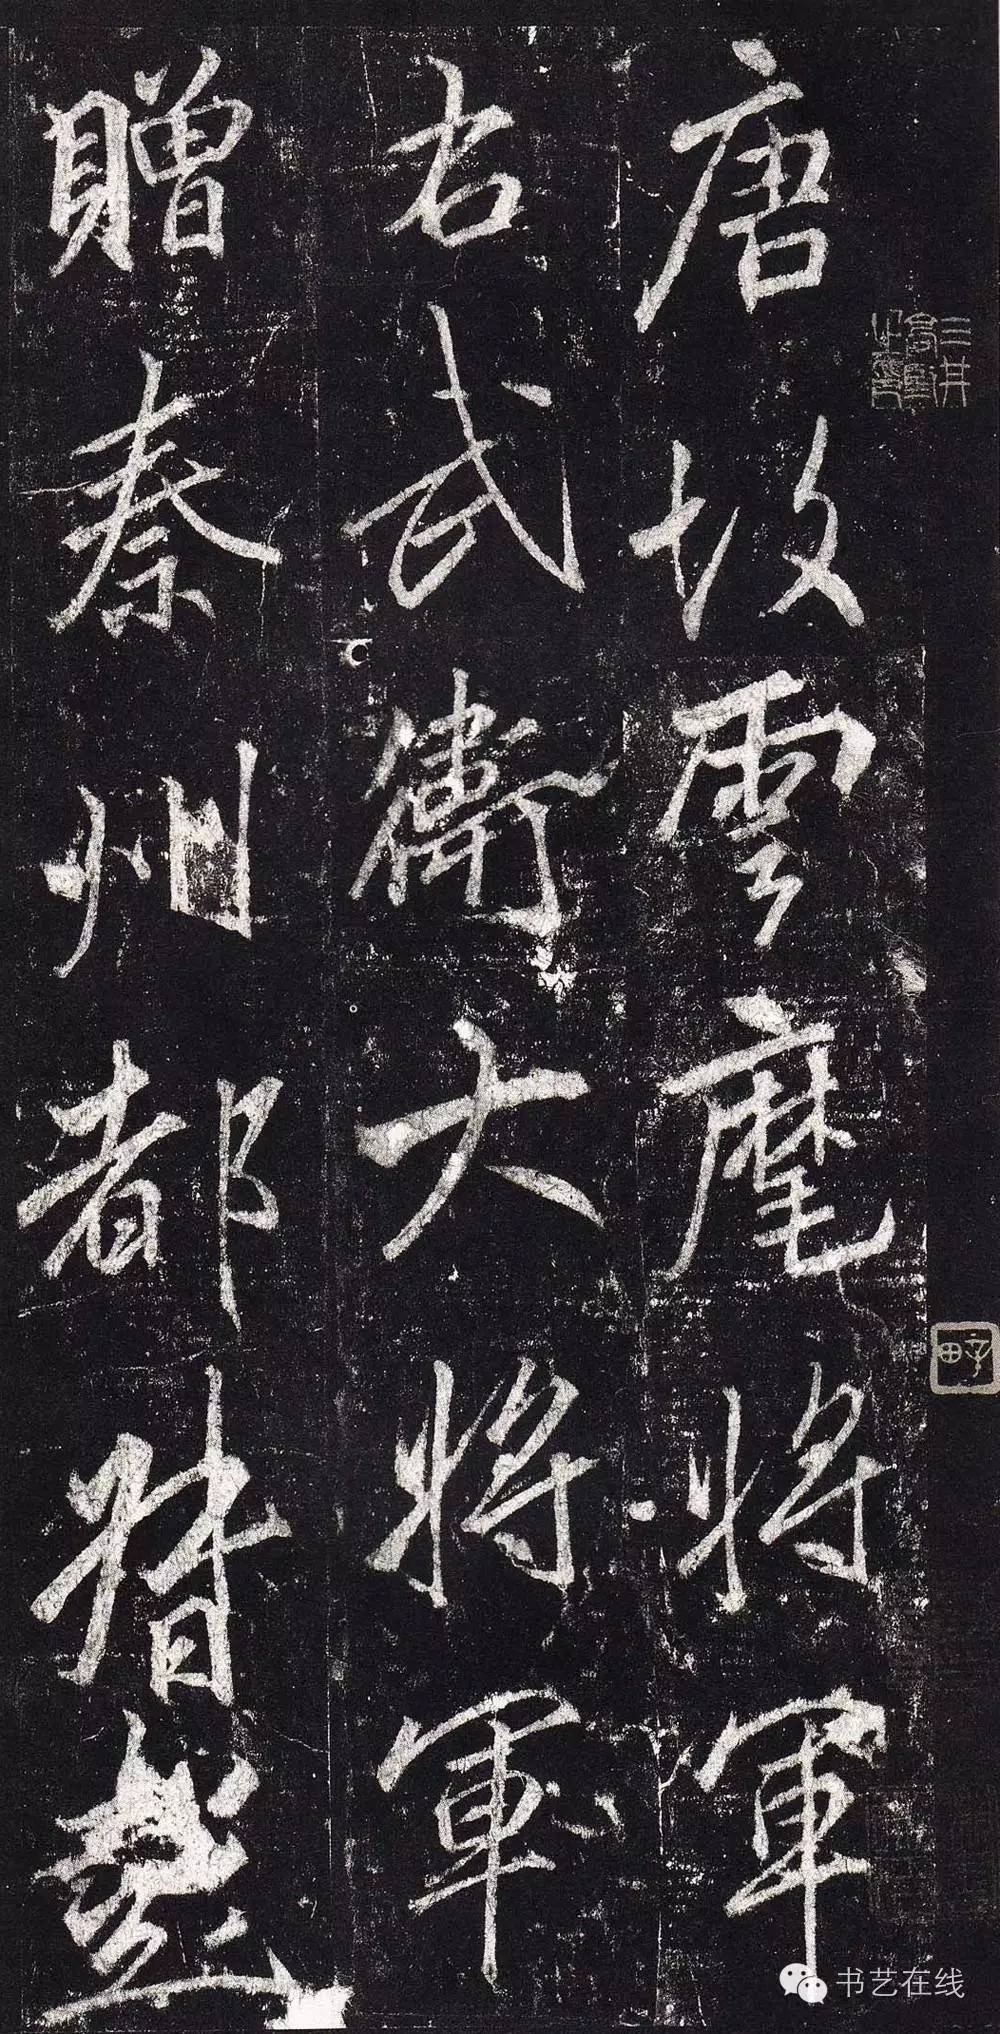 唐故雲麾將軍
右武衛大將軍
贈秦州都督
书艺在线